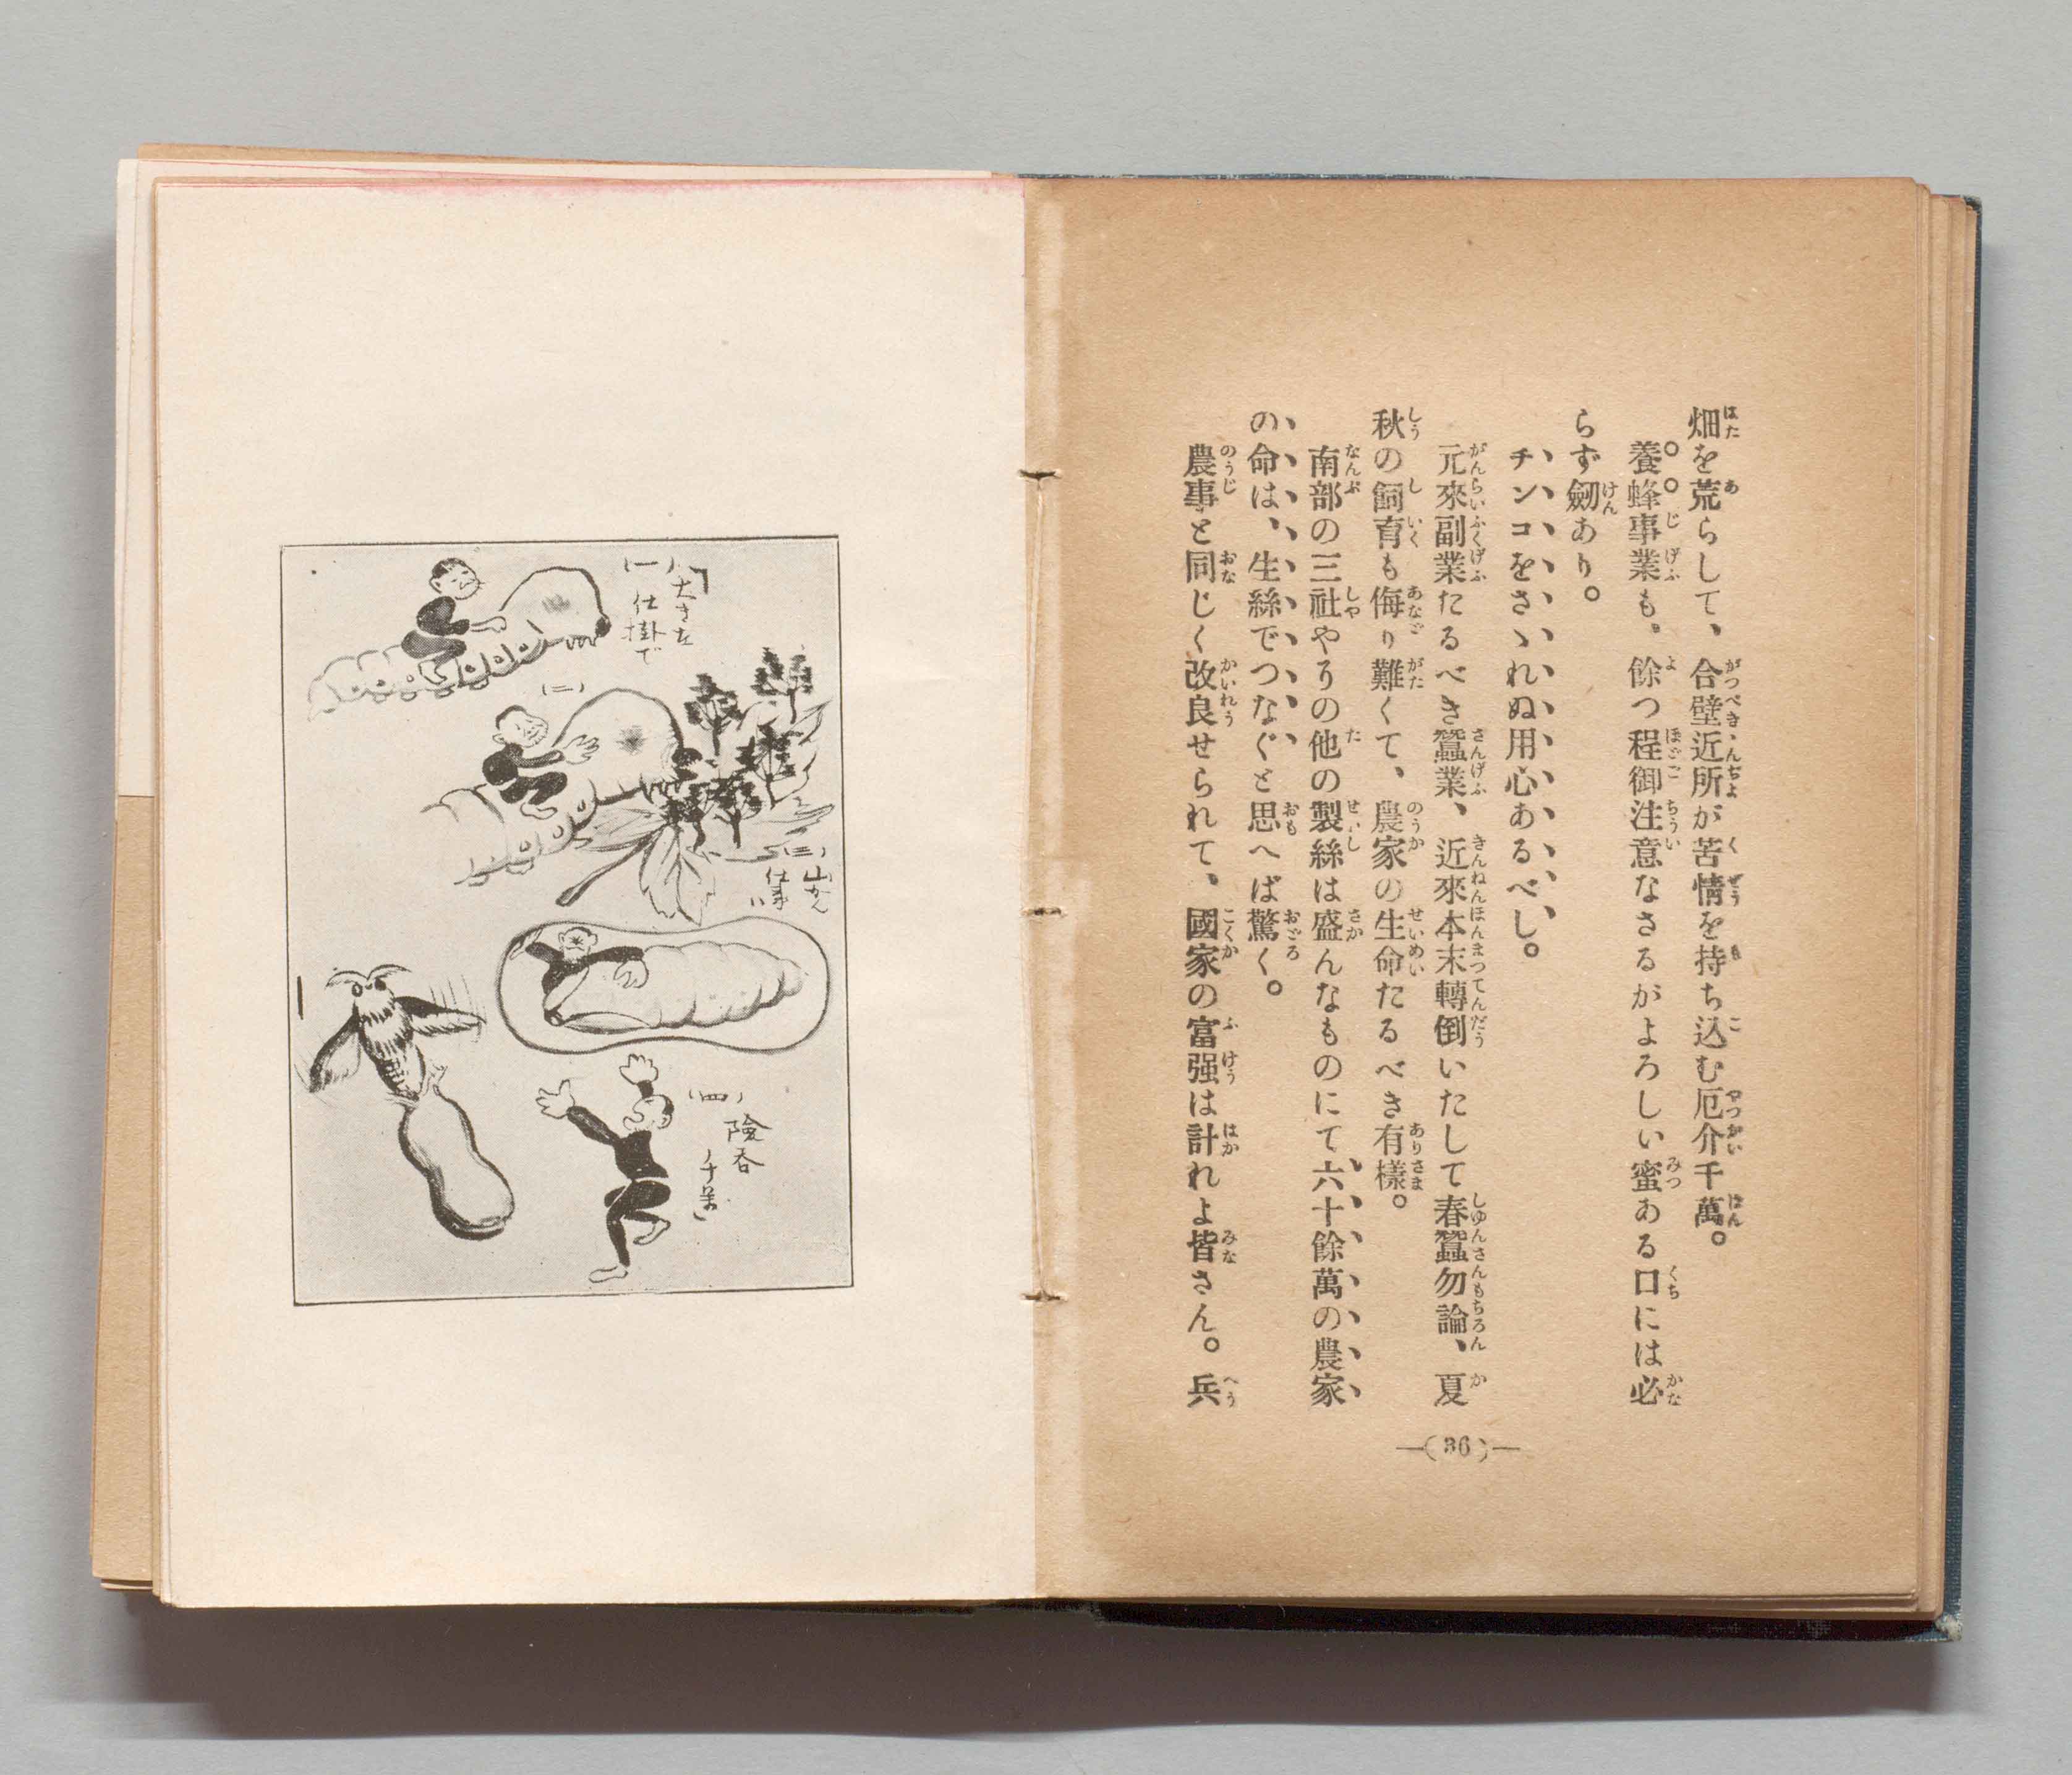 畑を荒らして、合壁近所が苦情を持ち込む厄介千萬。
養蜂事業も。餘つ程御注意なさるがよろしい蜜ある口には必
らず劒あり。
チンコをさゝれぬ用心あるべし。
元來副業たるべき蠶業、近來本末轉倒いたして春蠶勿論、夏
秋の飼育も侮り難くて、農家の生命たるべき有樣。
南部の三社やりの他の製絲は盛んなものにて六十餘萬の農家
の命は、生絲でつなぐと思へば驚く。
農事と同じく改良せられて、國家の富强は計れよ皆さん。兵
—(36)—
「大きな
(一)仕掛で
(二)
(三)山かん
仕事
(四)險呑